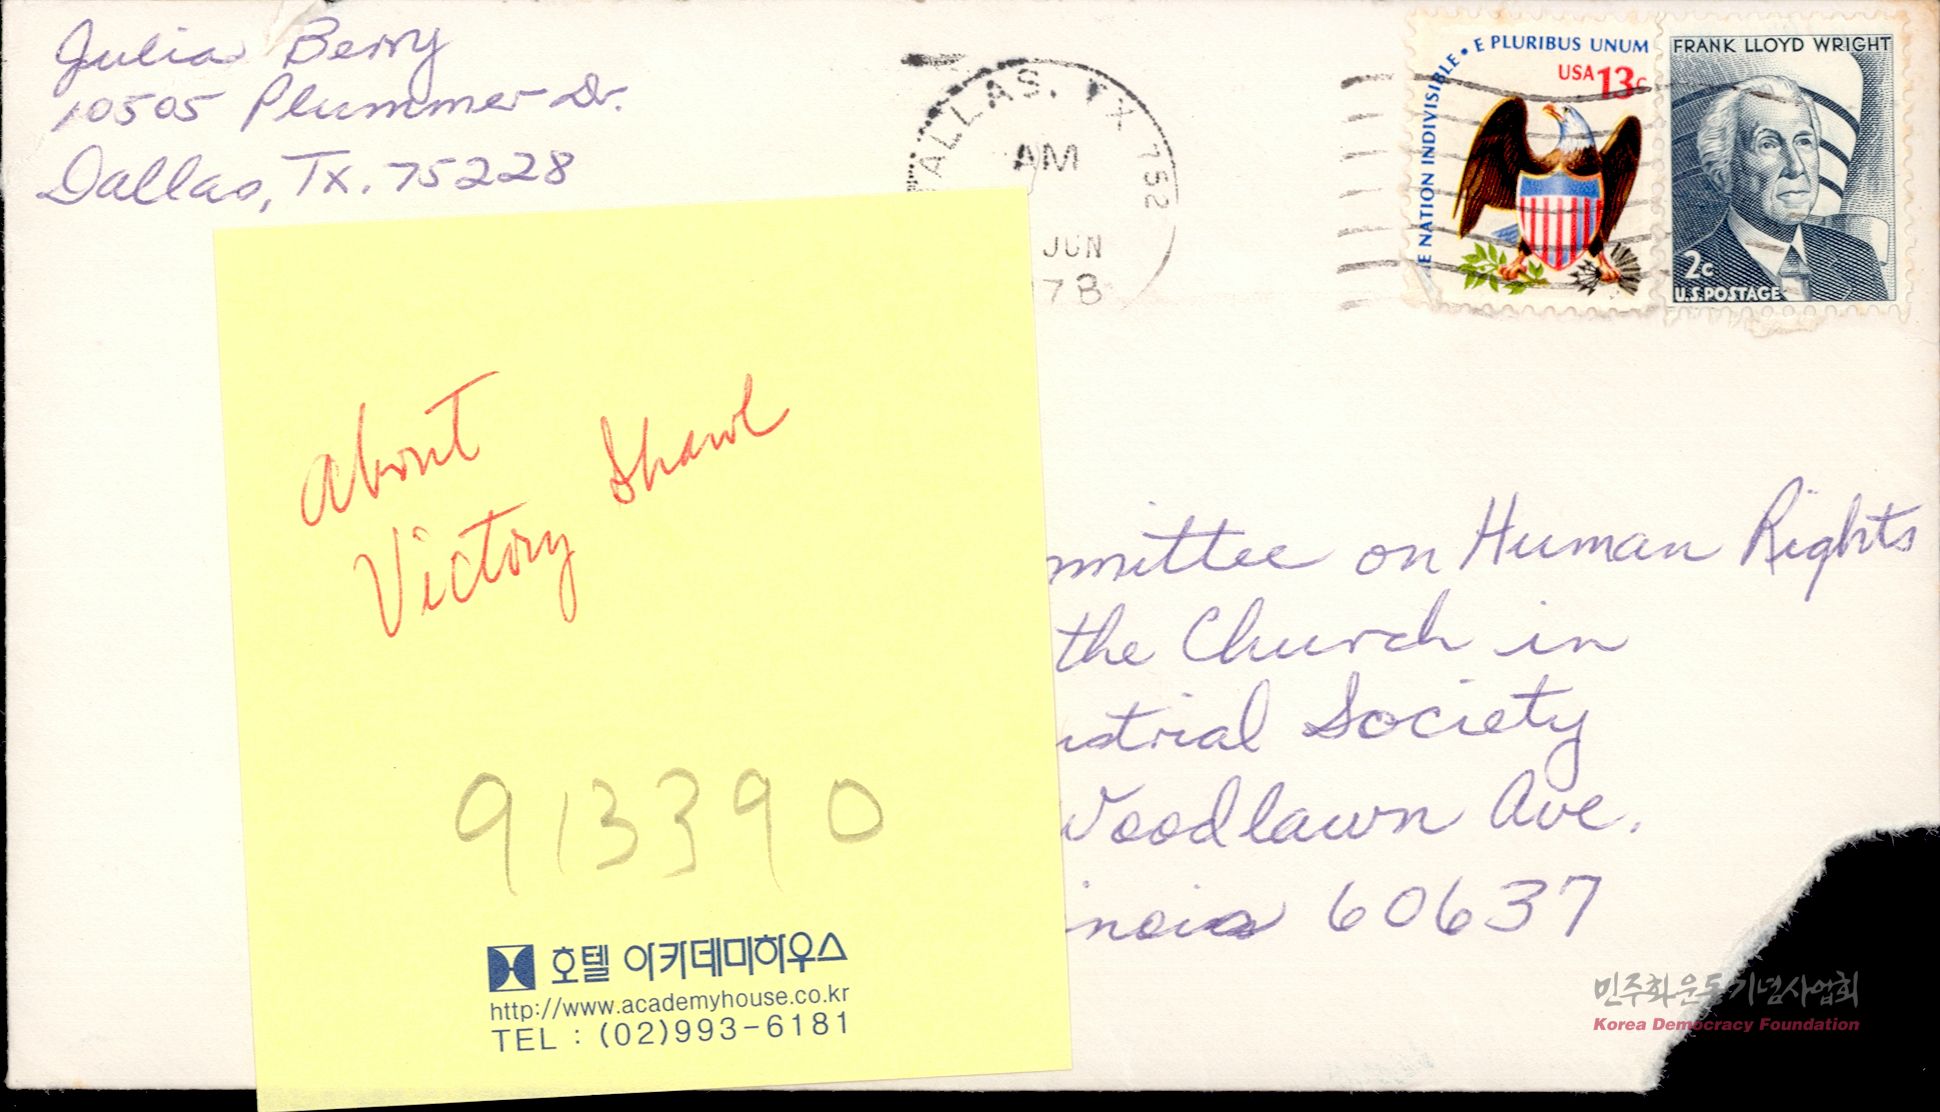 Julia Berry
10505 Plummer Dr.
Dallas, Tx. 75228
DALLAS, TX 752
AM
JUN
78
E NATION INDIVISIBLE • E PLURIBUS UNUM
USA 13c
FRANK LLOYD WRIGHT
2c
U.S. POSTAGE
About
Victory Shawl
mmittee on Human Rights
the Church in
ustrial Society
Woodlawn Ave.
inois 60637
913390
호텔 아카데미하우스
http://www.academyhouse.co.kr
TEL : (02)993-6181
민주화운동기념사업회
Korea Democracy Foundation